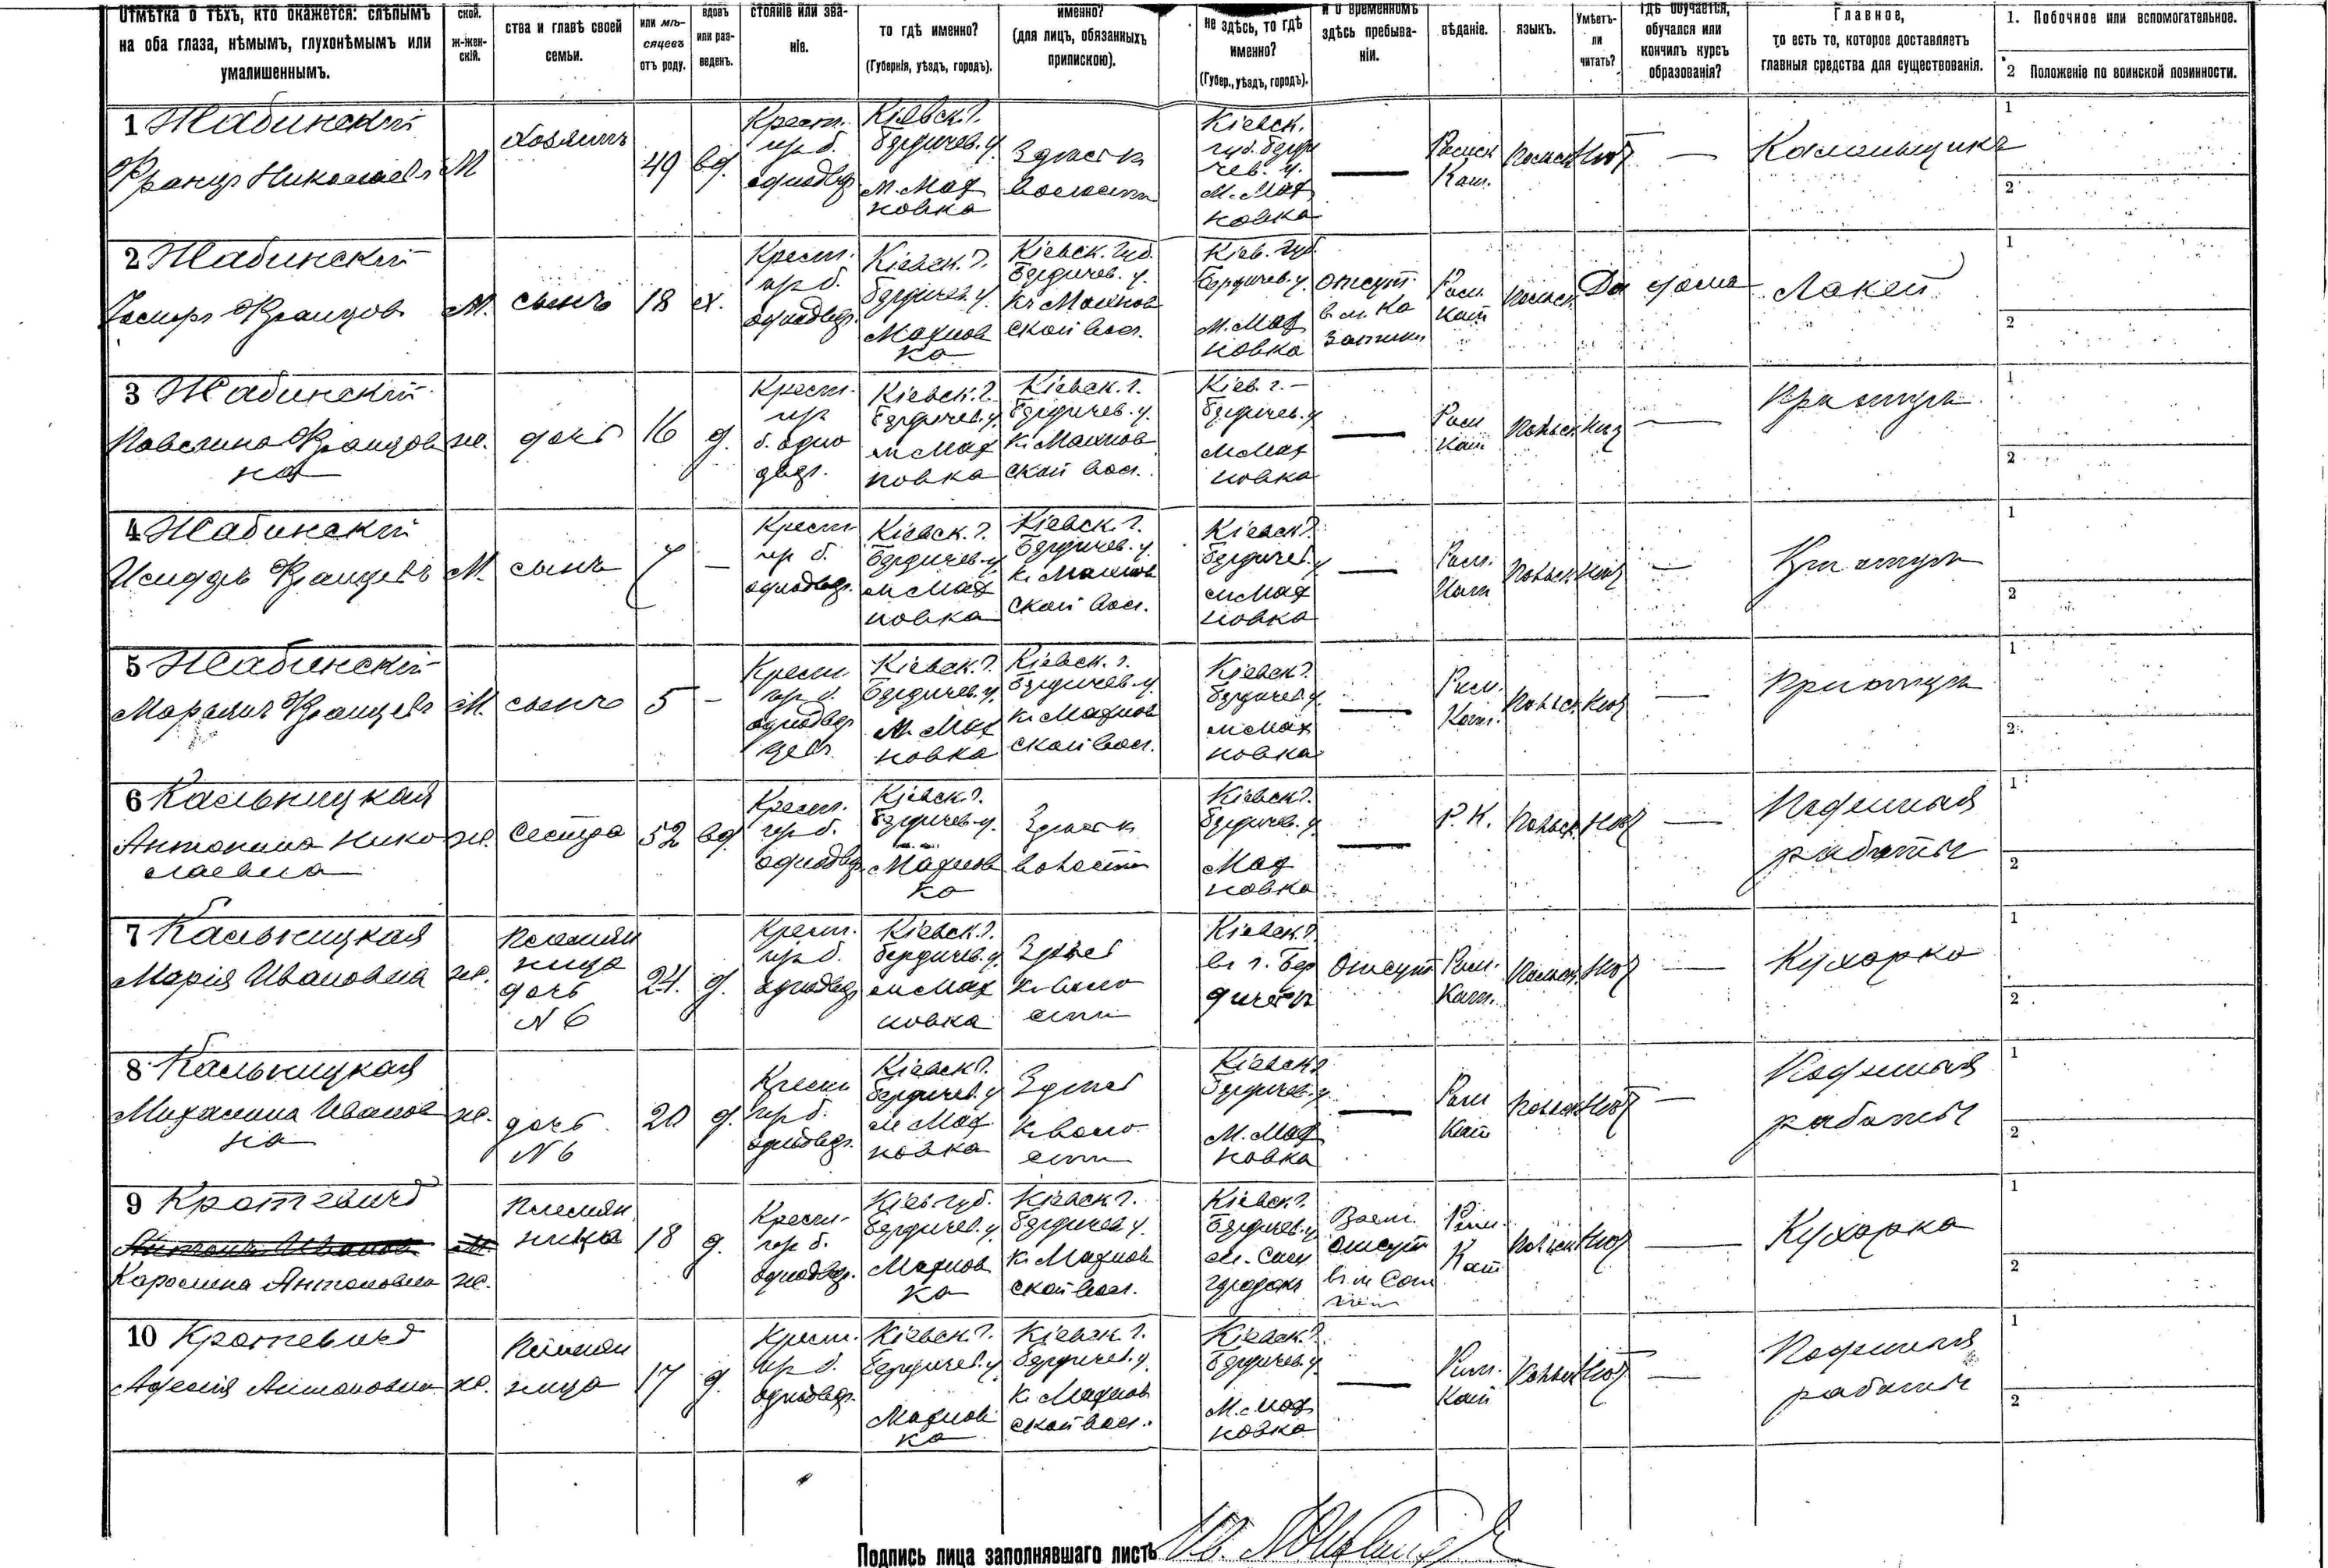 Отмѣтка о тѣхъ, кто окажется: слѣпымъ
на оба глаза, нѣмымъ, глухонѣмымъ или
умалишеннымъ.
ской.
ж-жен-
скій.
ства и главѣ своей
семьи.
или мѣ-
сяцевъ
отъ роду.
вдовъ
или раз-
веденъ.
стояніе или зва-
ніе.
то гдѣ именно?
(Губернія, уѣздъ, городъ).
именно?
(для лицъ, обязанныхъ
припискою).
не здѣсь, то гдѣ
именно?
(Губер., уѣздъ, городъ).
и о временномъ
здѣсь пребыва-
ніи.
вѣданіе.
языкъ.
Умѣетъ-
ли
читать?
гдѣ обучается,
обучался или
кончилъ курсъ
образованія?
Главное,
то есть то, которое доставляетъ
главныя средства для существованія.
1. Побочное или вспомогательное.
2 Положеніе по воинской повинности.
1 Жабинскій
Францъ Николаевъ
М
Хозяинъ
49
вд.
Крест.
изъ б.
однодвор.
Кіевск. г.
Бердичев. у.
м. Мах
новка
Здѣсь
волости
Кіевск.
губ. Берди
чев. у.
М. Мах
новка
—
Римск
Кат.
Польск
Нѣт
—
1
2
2 Жабинскій
Іосифъ Францов
М.
сынъ
18
х.
Крест.
изъ б.
однодвор.
Кіевск. г.
Бердичев. у.
Махнов
ка
Кіевск. губ.
Бердичев. у.
къ Махнов
ской вол.
Кіев. губ.
Бердичев. у.
М. Мах
новка
отсут.
Рим.
Кат
Польск.
Да
дома
Лакей
1
2
3 Жабинский
Павлина Францов
на
ж.
дочь
16
д.
Крест.
изъ
б. одно
двор.
Кіевск. г.
Бердичев. у.
м Мах
новка
Кіевск. г.
Бердичев. у.
къ Махнов
ской вол.
Кіев. г.
Бердичев. у
м Мах
новка
—
Рим
Кат
Польск.
Нѣт
—
При отцѣ
1
2
4 Жабинский
Францевъ
М.
сынъ
7
—
Крест
изъ б.
однодвор.
Кіевск. г.
Бердичев. у
м Мах
новка
Кіевск. г.
Бердичев. у.
къ Махнов
ской вол.
Кіевск г.
Бердичев. у
м Мах
новка
—
Рим.
Кат
Польск.
Нѣт
—
При отцѣ
1
2
5 Жабинскій
Марьянъ Францевъ
М.
сынъ
5
—
Крест.
изъ б.
однодвор
цевъ
Кіевск. г.
Бердичев. у.
м. Мах
новка
Кіевск. г.
Бердичев. у.
къ Махнов
ской вол.
Кіевск г.
Бердичев. у
м Мах
новка
—
Рим.
Кат.
Польск.
Нѣт
—
При отцѣ
1
2
6 Кальницкая
Антонина Нико
лаевна
ж.
Сестра
52
вд.
Крест.
изъ б.
однодвор.
Кіевск. г.
Бердичев. у.
Махнов
ка
Здѣсь
волости
Кіевск г.
Бердичев. у
Мах
новка
—
Р. К.
Польск.
Нѣт
—
Поденныя
работы
1
2
7 Кальницкая
Марія Ивановна
ж.
Племян
ница
дочь
N 6
24.
д.
Крест.
изъ б.
однодвор
Кіевск. г.
Бердичев. у.
м Мах
новка
Здѣсь
к воло
сти
Кіевск. г.
въ г. Бер
дичевѣ
Отсут
Рим.
Кат.
Польск.
Нѣт
—
Кухарка
1
2
8 Кальницкая
Михалина Иванов
на
ж.
дочь
N 6
20
д.
Крест
изъ б.
однодвор.
Кіевск г.
Бердичев. у
м Мах
новка
Здѣсь
к воло
сти
Кіевск г
Бердичев. у.
М. Мах
новка
—
Рим
Кат
Польск
Нѣт
—
Поденныя
работы
1
2
9 Кратевичъ
Каролина Антоновна
ж.
Племян
ница
18
д.
Крест.
изъ б.
однодвор.
Кіев губ.
Бердичев. у
Махнов
ка
Кіевск г.
Бердичев у.
къ Махнов
ской вол.
Кіевск г.
Бердичев. у
отсут
Рим.
Кат
Польск
Нѣт
—
Кухарка
1
2
10 Кратевичъ
Аделія Антоновна
ж.
Племян
ница
17
д.
Крест.
изъ б.
однодвор.
Кіевск. г.
Бердичев. у
Махнов
ка
Кіевск г.
Бердичев. у.
къ Махнов
ской вол.
Кіевск г.
Бердичев. у
М. Мах
новка
—
Рим.
Кат
Польск
Нѣт
—
Поденныя
работы
1
2
Подпись лица заполнявшаго листъ